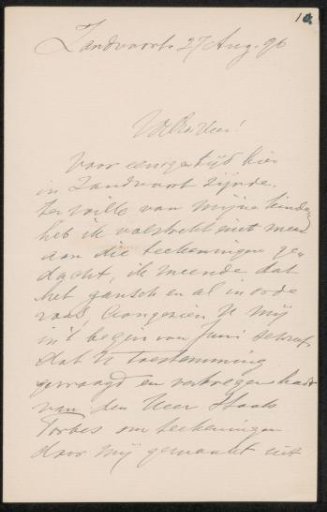 Zandvoort 27 Aug. 96
WelEd. Heer!
Voor eenigen tijd hier
in Zandvoort zijnde,
ter wille van mijne kinderen
heb ik volstrekt niet meer
aan die teekeningen ge-
dacht, ik meende dat
het gansch en al in orde
was, aangezien U mij
in't begin van Juni schreef
dat U toestemming
gevraagd en verkregen hadt
van den Heer Staats
Forbes om teekeningen
door mij gemaakt uit